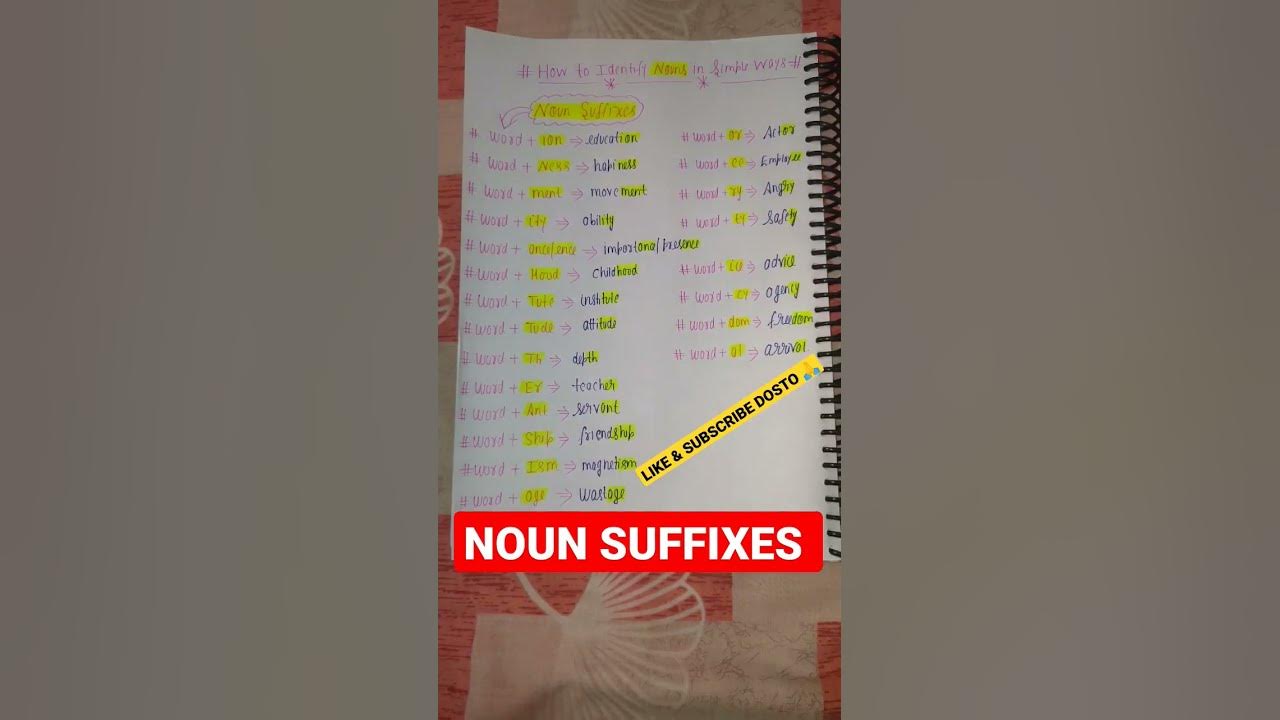 # How to Identify Nouns in Simple Ways #
Noun Suffixes
# Word + ion ⇒ education
# Word + Ness ⇒ hapiness
# Word + ment ⇒ movement
# Word + ity ⇒ ability
# Word + ance/ence ⇒ importance/presence
# Word + Hood ⇒ childhood
# Word + Tute ⇒ institute
# Word + Tude ⇒ attitude
# Word + Th ⇒ depth
# Word + Er ⇒ teacher
# Word + Ant ⇒ servant
# Word + Ship ⇒ friendship
# Word + Ism ⇒ magnetism
# Word + age ⇒ Wastage
# Word + or ⇒ Actor
# Word + ee ⇒ Employee
# Word + ry ⇒ Angry
# Word + ty ⇒ Safety
# Word + ice ⇒ advice
# Word + cy ⇒ agency
# Word + dom ⇒ freedom
# Word + al ⇒ arrival
LIKE & SUBSCRIBE DOSTO 🙏
NOUN SUFFIXES